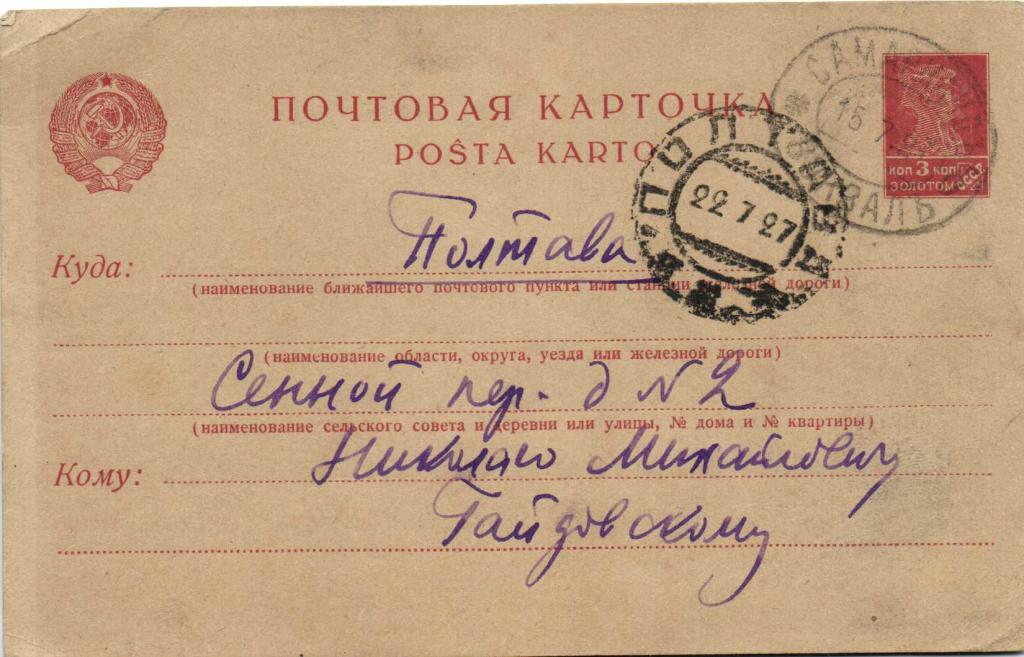 ПОЧТОВАЯ КАРТОЧКА
POŜTA KARTO
КОП 3 КОП
ЗОЛОТОМ
СССР
15 7
ВОКЗАЛЪ
ПОЛТАВА
22 7 27
Куда: Полтава
(наименование ближайшего почтового пункта или станции железной дороги)
(наименование области, округа, уезда или железной дороги)
Сенной пер. д N 2
(наименование сельского совета и деревни или улицы, № дома и № квартиры)
Кому: Николаю Михайловичу
Гайдовскому